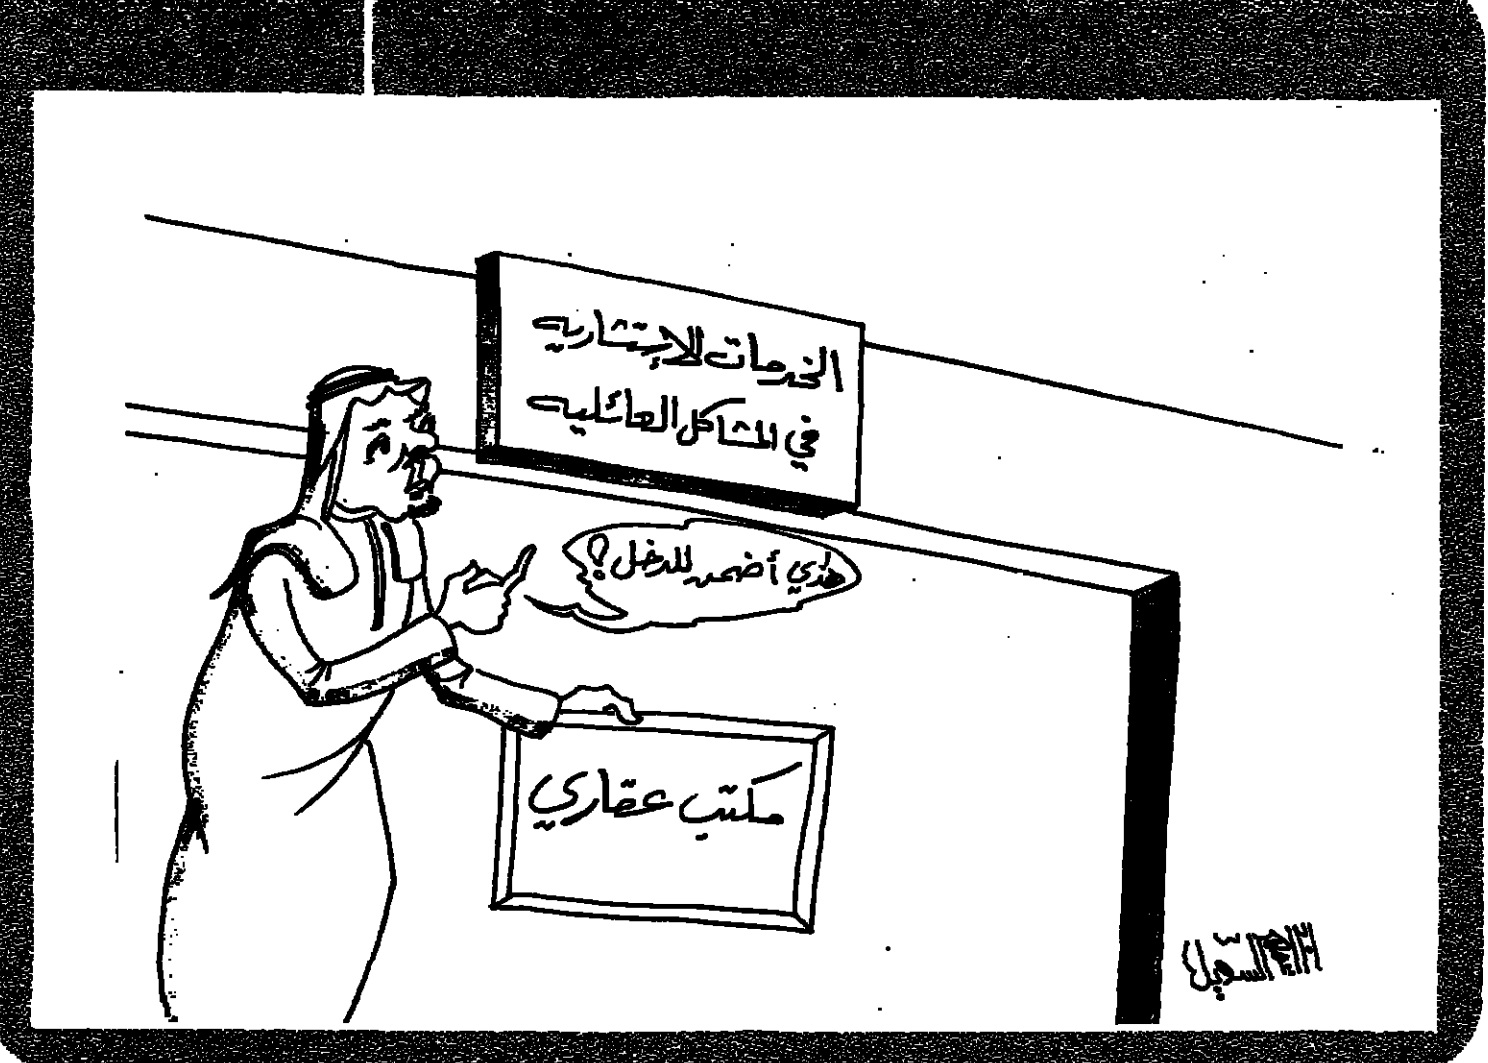 الخدمات الإستشاريه
في المشاكل العائليه
هذي أضمن للدخل؟
مكتب عقاري
السهيل